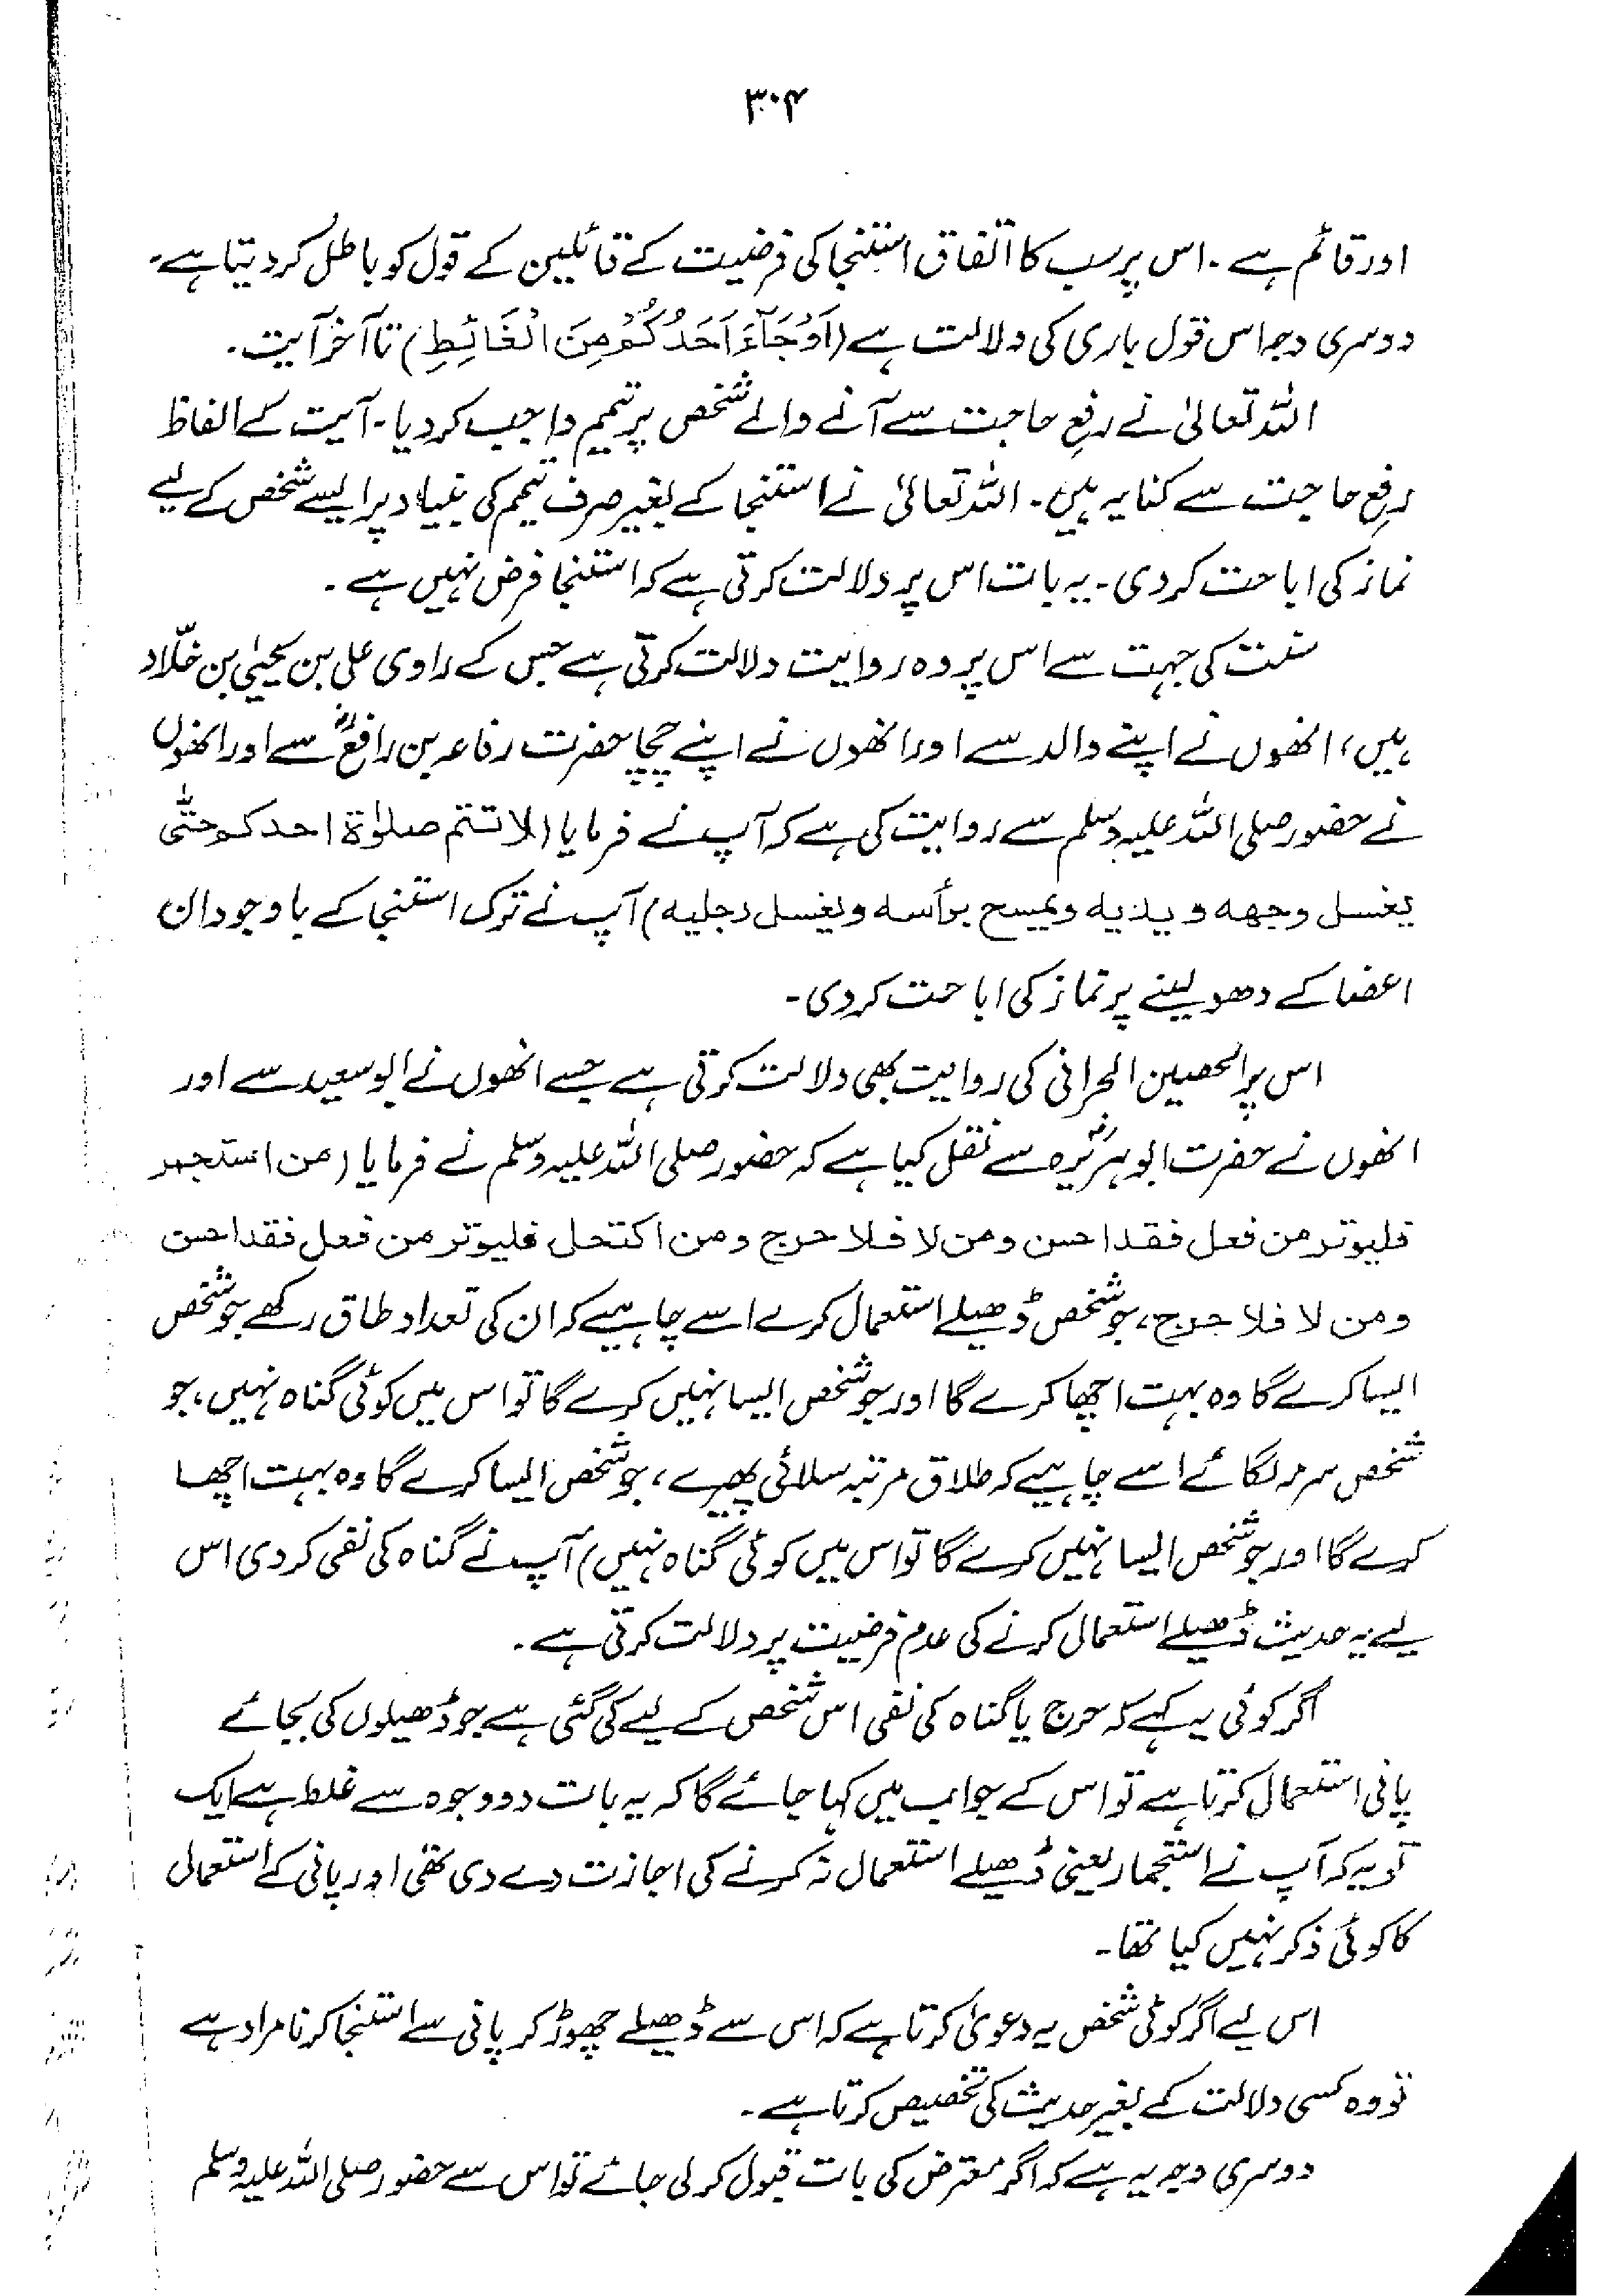 ۳۰۴
اور قائم ہے۔ اس پر سب کا اتفاق استنجا کی فرضیت کے قائلین کے قول کو باطل کر دیتا ہے۔
دوسری وجہ اس قول باری کی دلالت ہے (اَوْجَآءَ اَحَدُ كُمْ مِنَ الْغَائِطِ) تا آخر آیت۔
اللہ تعالیٰ نے رفع حاجت سے آنے والے شخص پر تیمم واجب کر دیا۔ آیت کے الفاظ
رفع حاجت سے کنایہ ہیں۔ اللہ تعالیٰ نے استنجا کے بغیر صرف تیمم کی بنیاد پر ایسے شخص کے لیے
نماز کی اباحت کر دی۔ یہ بات اس پر دلالت کرتی ہے کہ استنجا فرض نہیں ہے۔
سنت کی جہت سے اس پر وہ روایت دلالت کرتی ہے جس کے راوی علی بن یحییٰ بن خلّاد
ہیں، انھوں نے اپنے والد سے اور انھوں نے اپنے چچا حضرت رفاعہ بن رافعؓ سے اور انھوں
نے حضور صلی اللہ علیہ وسلم سے روایت کی ہے کہ آپ نے فرمایا (لا تتم صلوٰۃ احدکم حتّٰی
یغسل وجھه ویدیه ویمسح برأسه ویغسل رجلیه) آپ نے ترک استنجا کے باوجود ان
اعضا کے دھو لینے پر نماز کی اباحت کر دی۔
اس پر الحصین الحرانی کی روایت بھی دلالت کرتی ہے جسے انھوں نے ابوسعید سے اور
انھوں نے حضرت ابوہریرہؓ سے نقل کیا ہے کہ حضور صلی اللہ علیہ وسلم نے فرمایا (من استجمر
فلیوتر من فعل فقد احسن ومن لا فلا حرج ومن اکتحل فلیوتر من فعل فقد احسن
ومن لا فلا حرج، جو شخص ڈھیلے استعمال کرے اسے چاہیے کہ ان کی تعداد طاق رکھے جو شخص
ایسا کرے گا وہ بہت اچھا کرے گا اور جو شخص ایسا نہیں کرے گا تو اس میں کوئی گناہ نہیں، جو
شخص سرمہ لگائے اسے چاہیے کہ طلاق مرتبہ سلائی پھیرے، جو شخص ایسا کرے گا وہ بہت اچھا
کرے گا اور جو شخص ایسا نہیں کرے گا تو اس میں کوئی گناہ نہیں) آپ نے گناہ کی نفی کر دی اس
لیے یہ حدیث ڈھیلے استعمال کرنے کی عدم فرضیت پر دلالت کرتی ہے۔
اگر کوئی یہ کہے کہ حرج یا گناہ کی نفی اس شخص کے لیے کی گئی ہے جو ڈھیلوں کی بجائے
پانی استعمال کرتا ہے تو اس کے جواب میں کہا جائے گا کہ یہ بات دو وجوہ سے غلط ہے ایک
تو یہ کہ آپ نے استجمار یعنی ڈھیلے استعمال نہ کرنے کی اجازت دے دی تھی اور پانی کے استعمال
کا کوئی ذکر نہیں کیا تھا۔
اس لیے اگر کوئی شخص یہ دعویٰ کرتا ہے کہ اس سے ڈھیلے چھوڑ کر پانی سے استنجا کرنا مراد ہے
تو وہ کسی دلالت کے بغیر حدیث کی تخصیص کرتا ہے۔
دوسری وجہ یہ ہے کہ اگر معترض کی بات قبول کر لی جائے تو اس سے حضور صلی اللہ علیہ وسلم